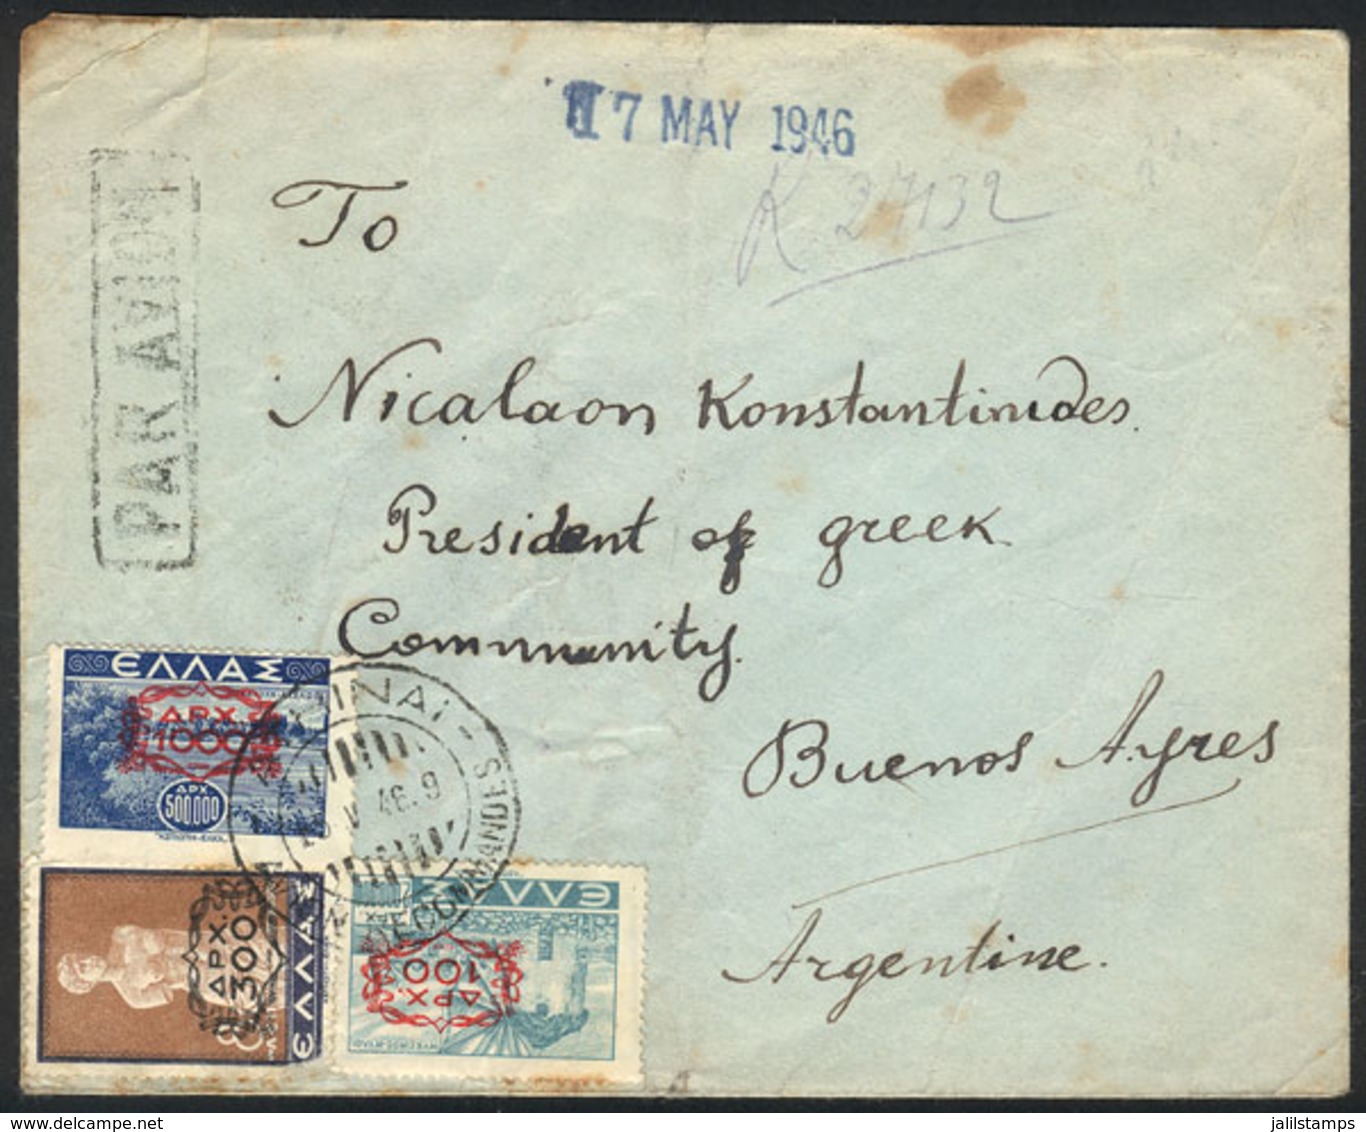 7 MAY 1946
R 27132
PAR AVION
To
Nicalaon Konstantinides.
President of greek
Community.
Buenos Ayres
Argentine.
ΕΛΛΑΣ
ΔΡΧ
1000
ΔΡΧ
500000
ΔΡΧ.
300
ΕΛΛΑΣ
ΕΛΛΑΣ
ΔΡΧ.
100
46.9
RECOMMANDES
jalilstamps